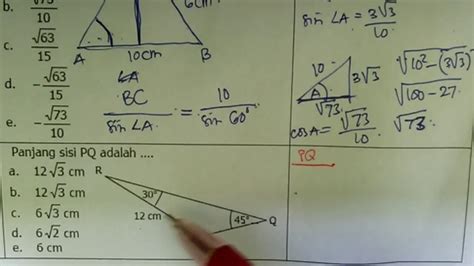 b. √73/10
6cm
c. √63/15
A
10cm
B
d. -√63/15
∠A
BC/sin ∠A = 10/sin 60°
e. -√73/10
sin ∠A = 3√3/10
10
3√3
A
√73
√10²-(3√3)
√100-27
√73
cos A = √73/10
Panjang sisi PQ adalah ....
a. 12√3 cm
b. 12√3 cm
c. 6√3 cm
d. 6√2 cm
e. 6 cm
R
30°
12 cm
45°
Q
PQ